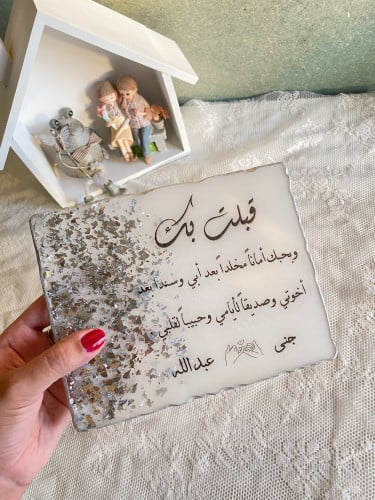 قبلت بك
وبحبك أماناً مخلداً بعد أبي وسنداً بعد
أخوتي وصديقاً لأيامي وحبيباً لقلبي
جنى
عبدالله